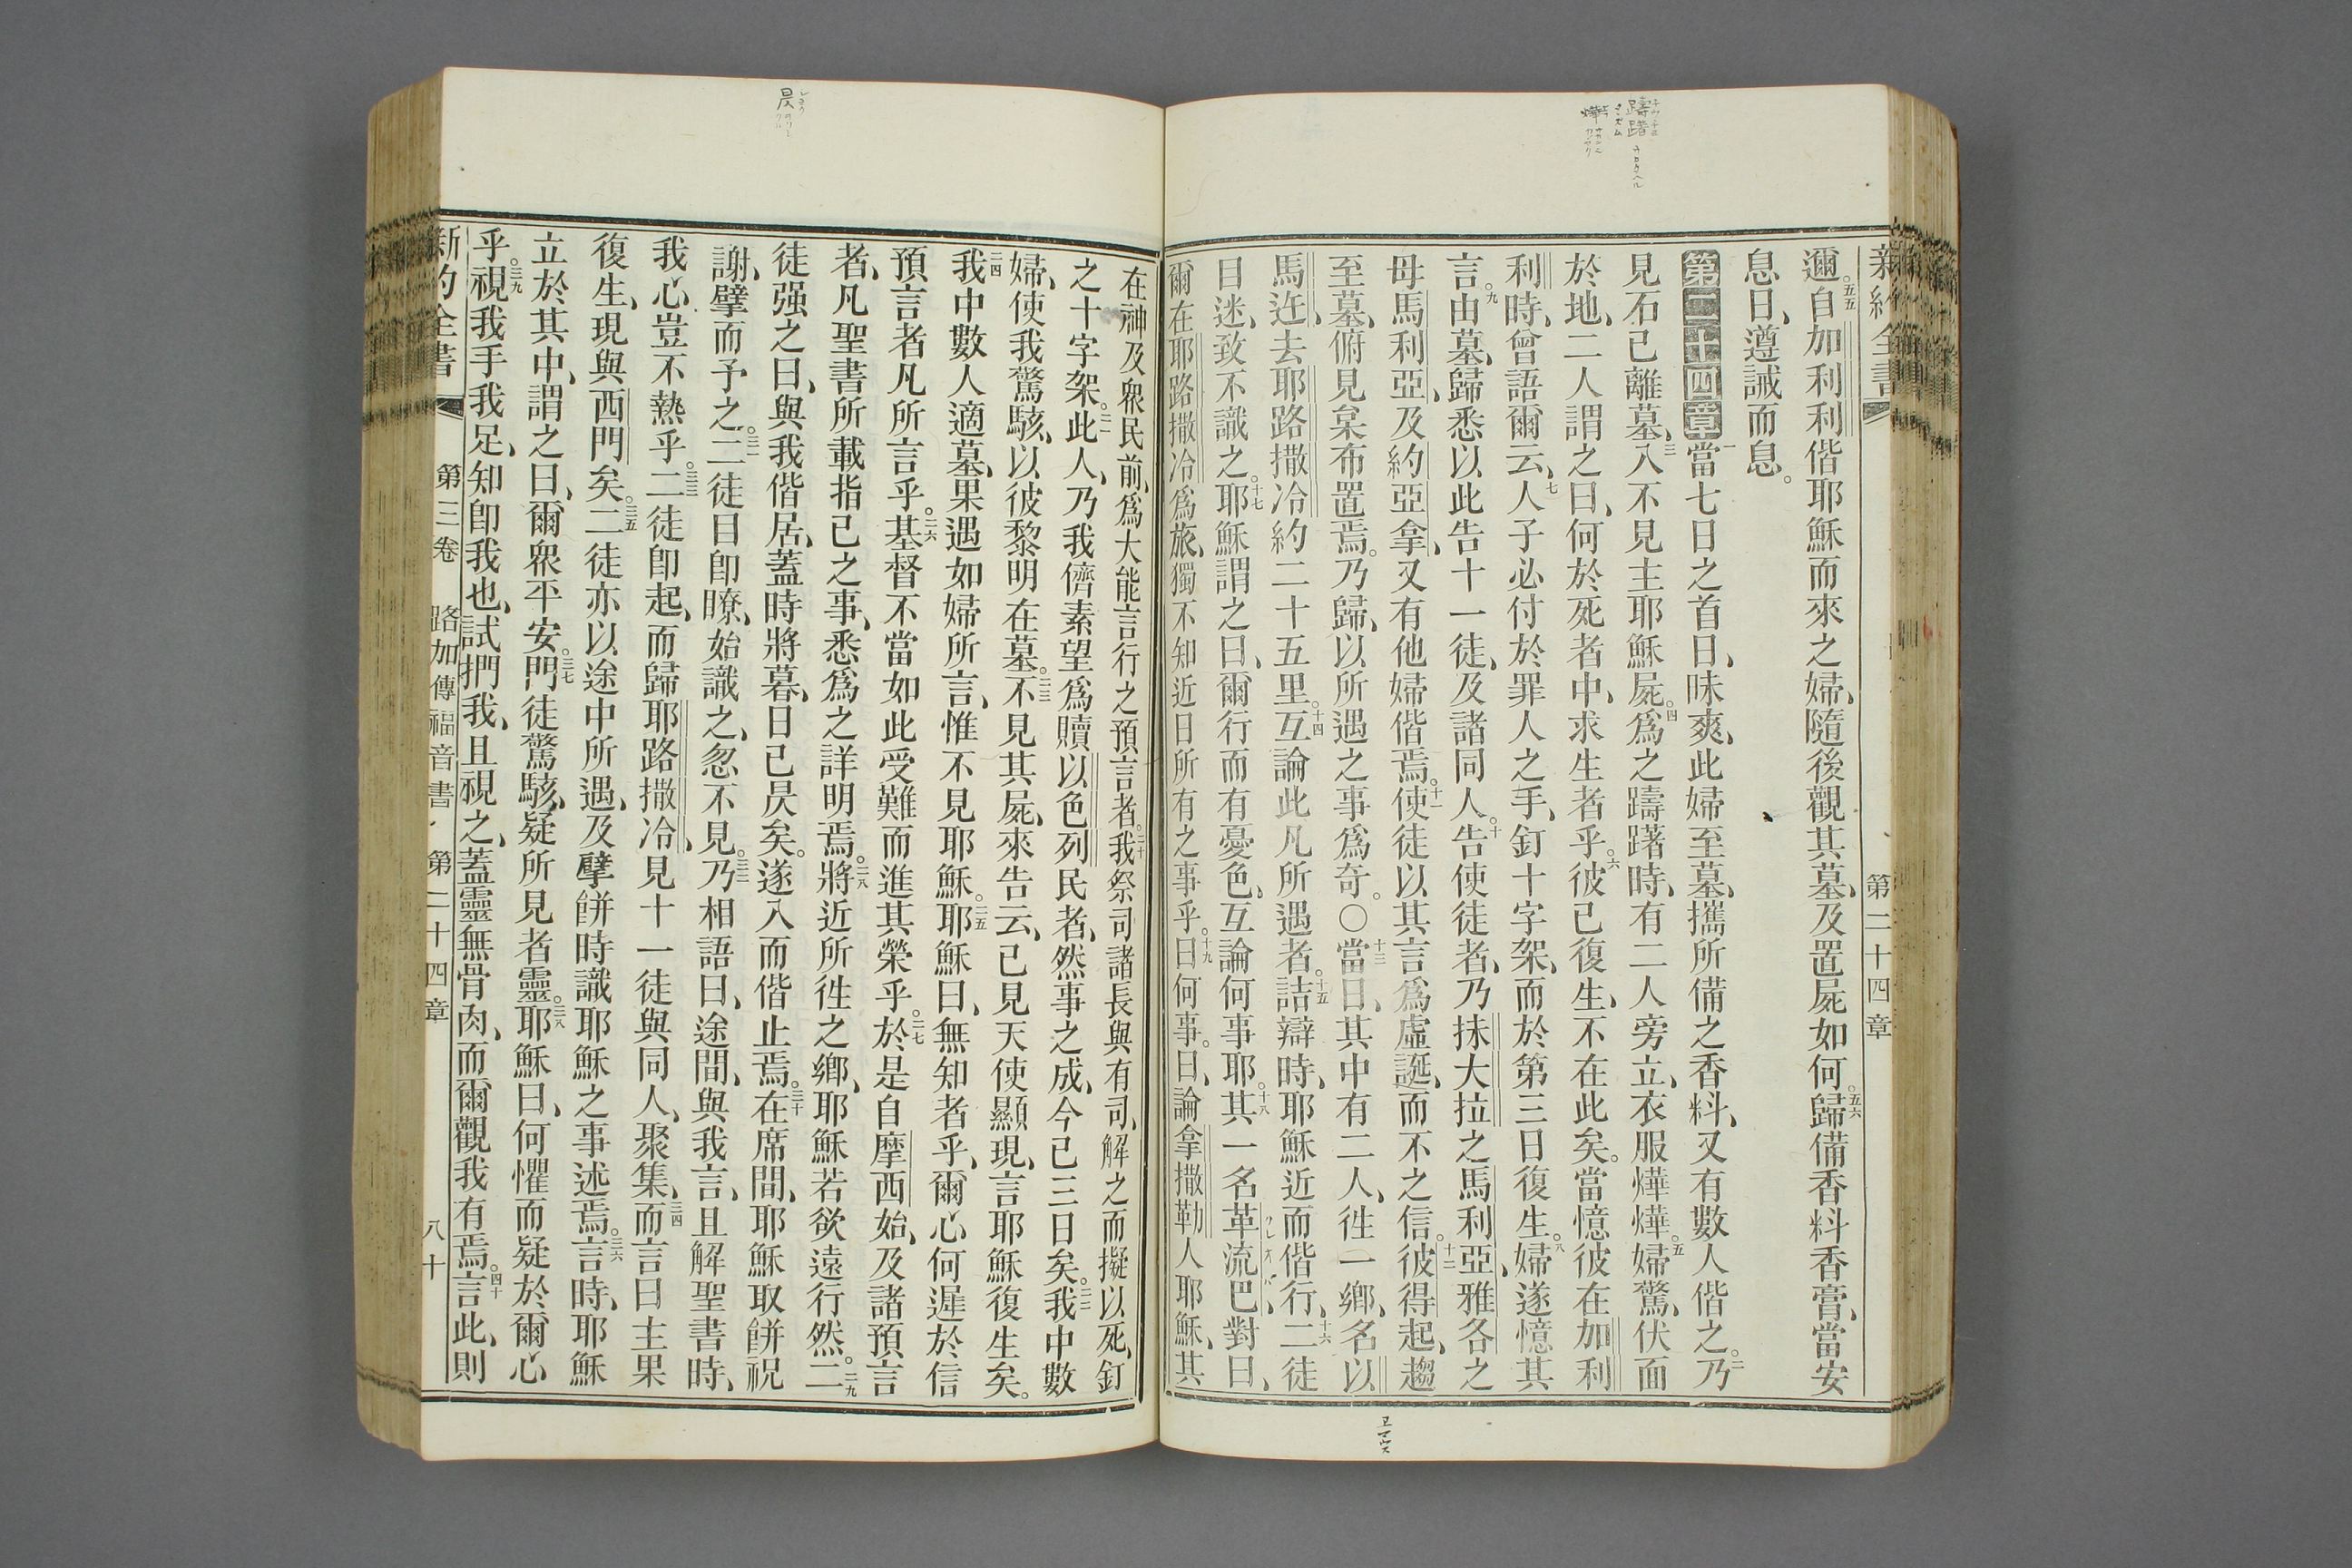 新約全書 第二十四章
邇。五五自加利利偕耶穌而來之婦、隨後觀其墓、及置屍如何。五六歸備香料香膏、當安
息日、遵誡而息。
第二十四章 一當七日之首日、昧爽、此婦至墓、攜所備之香料、又有數人偕之。二乃
見石已離墓、三入不見主耶穌屍。四爲之躊躇時、有二人旁立、衣服燁燁。五婦驚、伏面
於地、二人謂之曰、何於死者中、求生者乎。六彼已復生、不在此矣。當憶彼在加利
利時、曾語爾云、七人子必付於罪人之手、釘十字架、而於第三日復生。八婦遂憶其
言。九由墓、歸悉以此告十一徒、及諸同人。十告使徒者、乃抹大拉之馬利亞、雅各之
母馬利亞、及約亞拿、又有他婦偕焉。十一使徒以其言爲虛誕、而不之信。十二彼得起、趨
至墓、俯見枲布置焉。乃歸、以所遇之事爲奇。○十三當日、其中有二人、徃一鄉、名以
馬迕、去耶路撒冷約二十五里。十四互論此凡所遇者。十五詰辯時、耶穌近而偕行、十六二徒
目迷、致不識之。十七耶穌謂之曰、爾行而有憂色、互論何事耶。十八其一名革流巴、對曰、
爾在耶路撒冷爲旅、獨不知近日所有之事乎。十九曰何事。曰、論拿撒勒人耶穌、其
躊躇
燁
在神及衆民前、爲大能言行之預言者。二十我祭司諸長與有司、解之而擬以死、釘
之十字架。二一此人、乃我儕素望爲贖以色列民者、然事之成、今已三日矣。二二我中數
婦、使我驚駭、以彼黎明在墓。二三不見其屍、來告云、已見天使顯現、言耶穌復生矣。
二四我中數人適墓、果遇如婦所言、惟不見耶穌。二五耶穌曰、無知者乎、爾心何遲於信
預言者凡所言乎。二六基督不當如此受難而進其榮乎。二七於是自摩西始、及諸預言
者、凡聖書所載指己之事、悉爲之詳明焉。二八將近所徃之鄉、耶穌若欲遠行然。二九二
徒强之曰、與我偕居、蓋時將暮、日已昃矣。遂入而偕止焉。三十在席間、耶穌取餅祝
謝、擘而予之。三一二徒目卽瞭、始識之、忽不見。三二乃相語曰、途間、與我言、且解聖書時、
我心豈不熱乎。三三二徒卽起、而歸耶路撒冷、見十一徒與同人、聚集、三四而言曰主果
復生、現與西門矣。三五二徒亦以途中所遇、及擘餅時識耶穌之事述焉。三六言時、耶穌
立於其中、謂之曰、爾衆平安。三七門徒驚駭、疑所見者靈。三八耶穌曰、何懼而疑於爾心
乎。三九視我手我足、知卽我也、試捫我、且視之、蓋靈無骨肉、而爾觀我有焉。四十言此、則
新約全書 第三卷 路加傳福音書 第二十四章 八十
昃